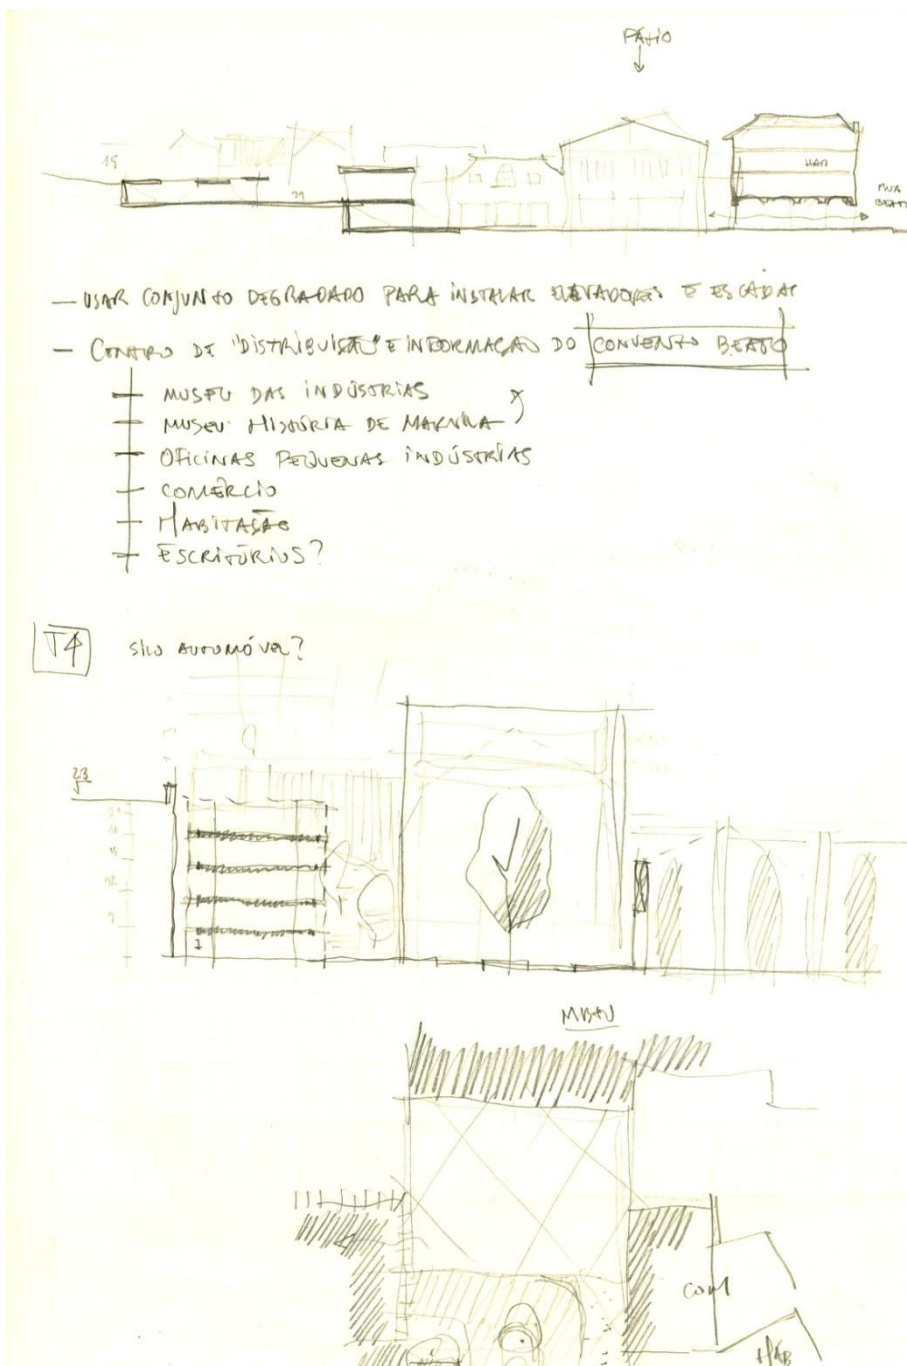 PÁTIO
15
HAB
RUA
BEATO
— USAR CONJUNTO DEGRADADO PARA INSTALAR ELEVADORES E ESCADAS
— CENTRO DE "DISTRIBUIÇÃO" E INFORMAÇÃO DO CONVENTO BEATO
MUSEU DAS INDÚSTRIAS
MUSEU HISTÓRIA DE MARVILA
OFICINAS PEQUENAS INDÚSTRIAS
COMÉRCIO
HABITAÇÃO
ESCRITÓRIOS?
T4 SILO AUTOMÓVEL?
23
COM
HAB